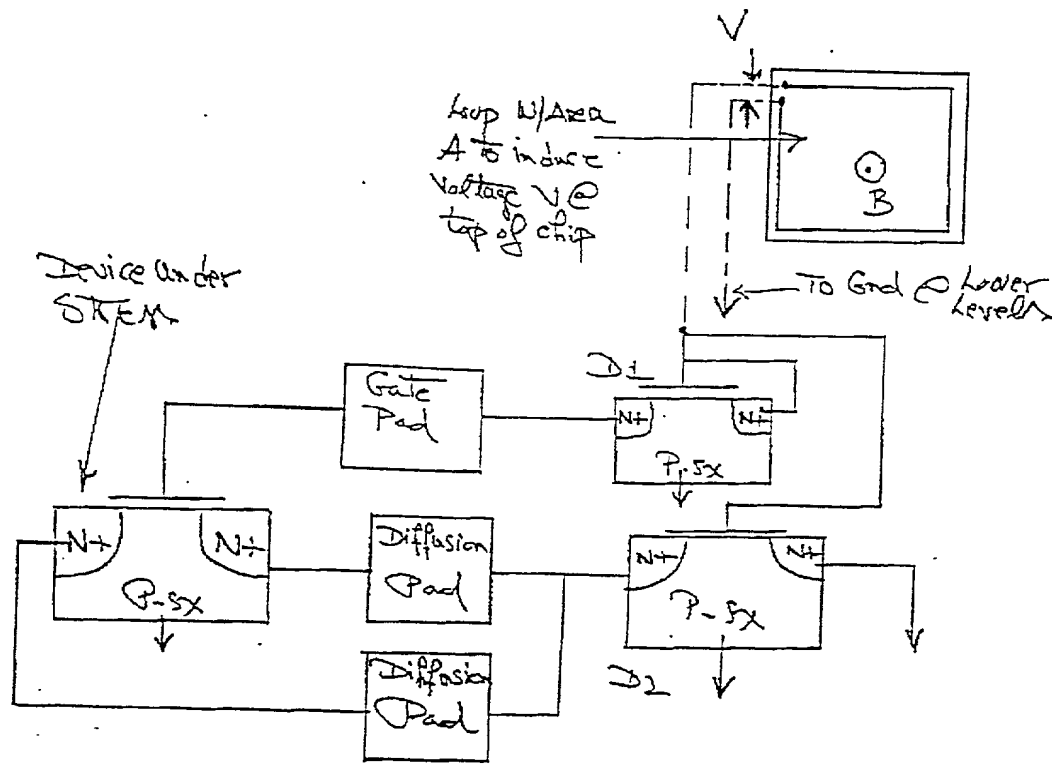 V
Loop w/Area
A To induce
Voltage V @
top of chip
B
Device under
To Gnd @ Lower
Levels
D1
Gate
Pad
N+ N+
P-sx
N+ N+
P-sx
Diffusion
Pad
N+ N+
P-sx
D2
Diffusion
Pad